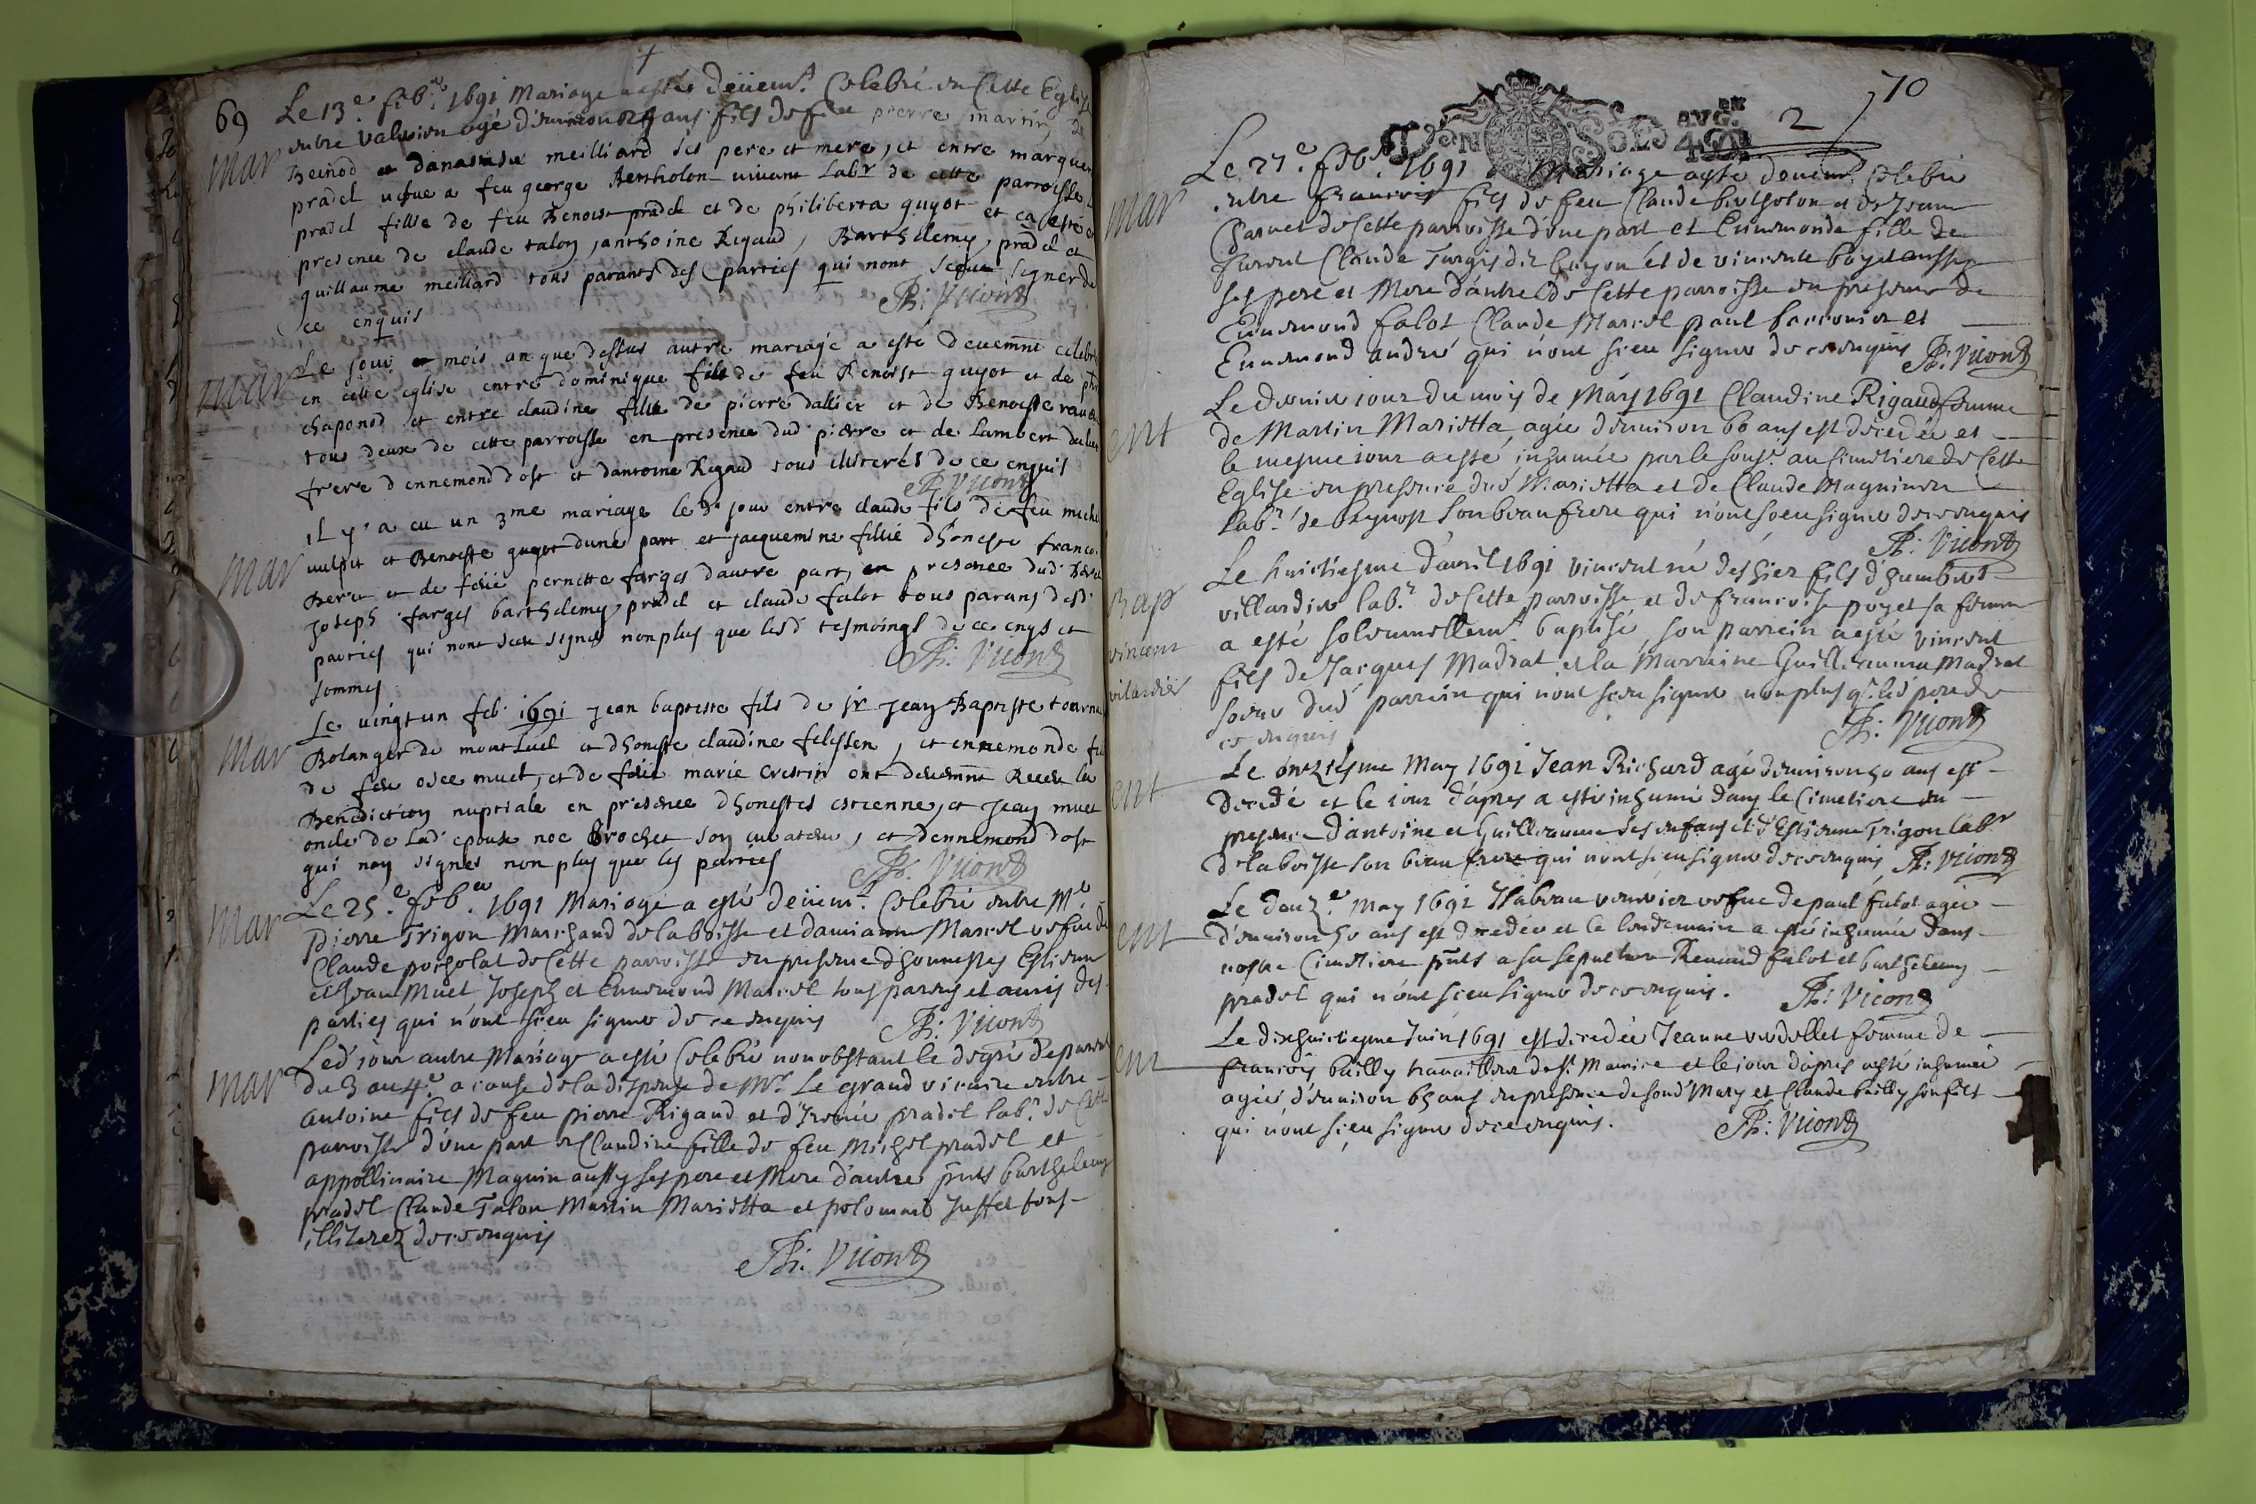 69
Le 13.e feb.r 1691 Mariage a esté deüem.t Celebré en Cette Eglise
mar
entre agé d'environ 24 ans fils de feu pierre martin
Beinod et meilliard ses pere et mere, et entre
pradel vefue a feu george Bertholon vivant Lab.r de cette parroisse
pradel fille de feu Benoist pradel et de philiberta guyot et ca esté
presence de claude talon, anthoine Rigaud, Barthelemy pradel et
guillaume meillard tous parants des parties qui nont sceu signer de
ce enquis
Ph: Vicond
mar
Le jour et mois an que dessus autre mariage a esté deuemnt celebré
en cette eglise entre dominique fils de feu Benoist guyot et de
chaponod et entre claudine fille de pierre dallier et de Benoiste
tous deux de cette parroisse en presence dud pierre et de Lambert
frere d'ennemond dost et dantoine Rigaud tous illiterés de ce enquis
Ph: Vicond
mar
il y a eu un 3me mariage le d. jour entre claude fils de feu
vulpit et Benoiste guyot dune part et jacquemine fillie dhoneste
et de feüe pernette farges dautre part, en presence dud
Joseph farges barthelemy pradel et claude falot tous parans desd.
parties qui nont sceu signer nonplus que lesd tesmoings de ce enqs et
sommes
Ph: Vicond
mar
Le vingt un feb. 1691 jean baptiste fils de sr jean Baptiste
Bolanger de montluel et dhoneste claudine felissen, et ennemonde
de feu muet, et de feüe marie crestin ont deuemnt Receu la
Benediction nuptiale en presence dhonestes estienne, et jean muet
oncles de lad. epouse noe Brochet son curateur, et dennemond dost
qui non signes non plus que les parties
Ph: Vicond
mar
Le 25.e feb.er 1691 Mariage a esté deüem.t Celebré entre M.e
pierre Trigon Marchand de la boisse et damianne Marcel vefue de
Claude poicholat de Cette parroisse en presence d'honnestes Estienne
et Jean Muet Joseph et Ennemond Marcel tous parens et amis des
parties qui n'ont sceu signer de ce enquis
Ph: Vicond
mar
Led. jour autre Mariage a esté Celebré nonobstant le degré de parenté
du 3 au 4.e a cause de la dispense de Mr. Le grand vicaire entre
antoine fils de feu pierre Rigaud et d'Irenée pradel lab.r de Cette
parroisse d'une part et Claudine fille de feu Michel pradel et
appollinaire Maguin aussy ses pere et Mere d'autre pnts barthelemy
pradel Claude Talon Martin Marietta et polomard Juffet tous
illiterez de ce enquis
Ph: Vicond
70
2
Le 27.e feb. 1691 Mariage a esté deuem.t Celebré
mar
entre francois fils de feu Claude bertholon et de Jeanne
Charvet de Cette parroisse d'une part et Ennemonde fille de
Claude Turgis dit et de vincente boyet aussy
ses pere et Mere d'autre de Cette parroisse en presence de
Ennemond falot Claude Marcel paul et
Ennemond andré qui n'ont sceu signer de ce enquis Ph: Vicond
ent
Le dernier jour du mois de Mars 1691 Claudine Rigaud femme
de Martin Marietta agée d'environ 60 ans est decedée et
le mesme jour a esté inhumée par le sousé. au Cimetiere de Cette
Eglise en presence dud Marietta et de Claude Magninon
lab.r de beynost son beau frere qui n'ont sceu signer de ce enquis
Ph: Vicond
Bap
vincent
vilardier
Le huictiesme d'avril 1691 vincent né d'eshier fils d'humbert
villardier lab.r de Cette parroisse et de francoise poyet sa femme
a esté solemnellem.t baptisé, son parrein a esté vincent
fils de Jacques Madrat et la Marraine Guillermina Madrat
soeur dud parrein qui n'ont sceu signer nonplus q. led pere de
ce enquis
Ph: Vicond
ent
Le onziesme May 1691 Jean Richard agé d'environ 50 ans est
decedé et le jour d'apres a esté inhumé dans le Cimetiere en
presence d'antoine et Guillaume ses enfans et d'Estienne Trigon lab.r
de la boisse son beau frere qui n'ont sceu signer de ce enquis Ph: Vicond
ent
Le douz.e May 1691 Isabeau vefue de paul falot agée
d'environ 50 ans est decedée et le lendemain a esté inhumée dans
nostre Cimetiere pnts a sa sepulture Renaud falot et barthelemy
pradel qui n'ont sceu signer de ce enquis.
Ph: Vicond
ent
Le dixhuictiesme Juin 1691 est decedée Jeanne verdellet femme de
francois bailly travailleur de St. Maurice et le jour d'apres a esté inhumée
agée d'environ 65 ans en presence de sond Mary et Claude bailly son fils
qui n'ont sceu signer de ce enquis.
Ph: Vicond